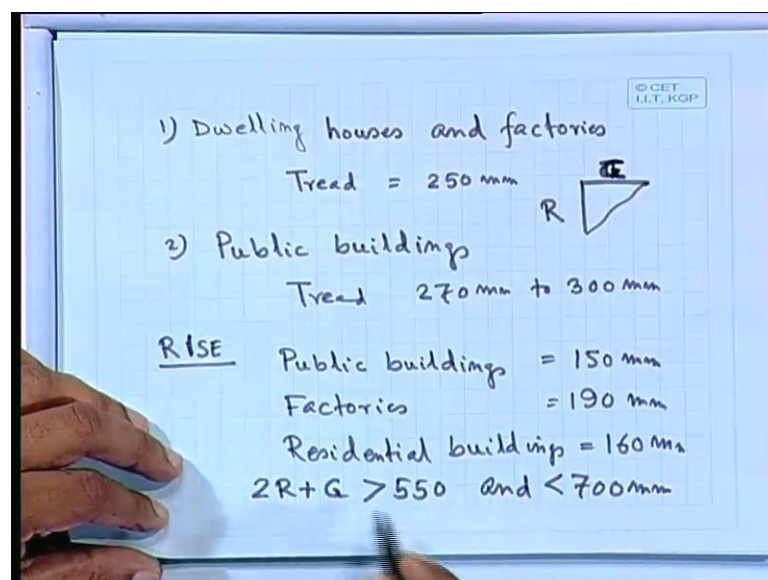 © CET
I.I.T. KGP
1) Dwelling houses and factories
Tread = 250 mm
R
2) Public buildings
Tread 270 mm to 300 mm
RISE Public buildings = 150 mm
Factories = 190 mm
Residential buildings = 160 mm
2R+G > 550 and < 700mm